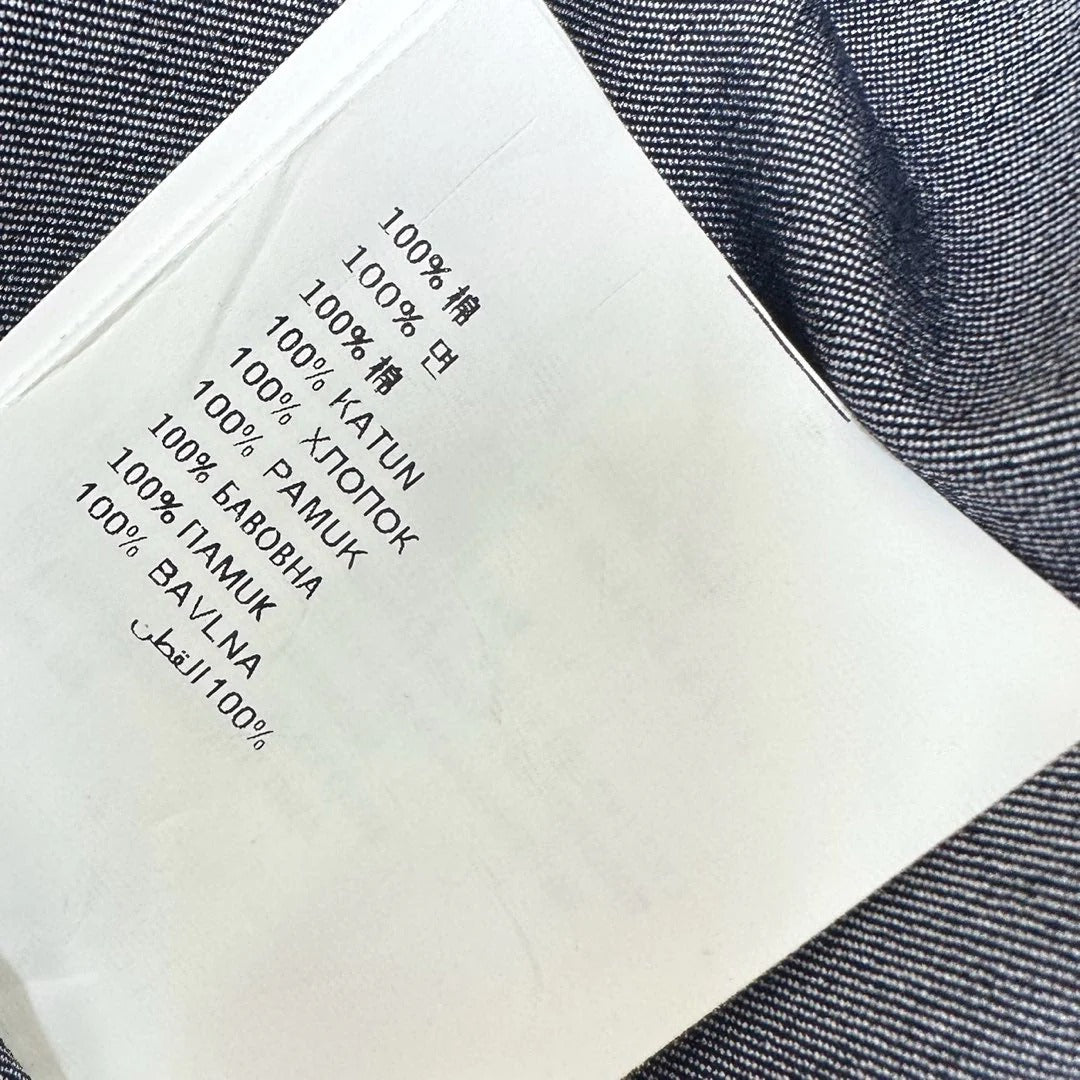 100% 棉
100% 면
100% 棉
100% KATUN
100% ХЛОПОК
100% PAMUK
100% БАВОВНА
100% ПАМUК
100% BAVLNA
100% القطن